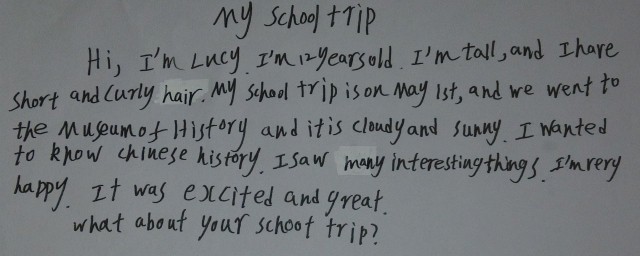 My school trip
Hi, I'm Lucy. I'm 12 years old. I'm tall, and I have
short and curly hair. My school trip is on May 1st, and we went to
the Museum of History and it is cloudy and sunny. I wanted
to know chinese history. I saw many interesting things. I'm very
happy. It was excited and great.
what about your school trip?